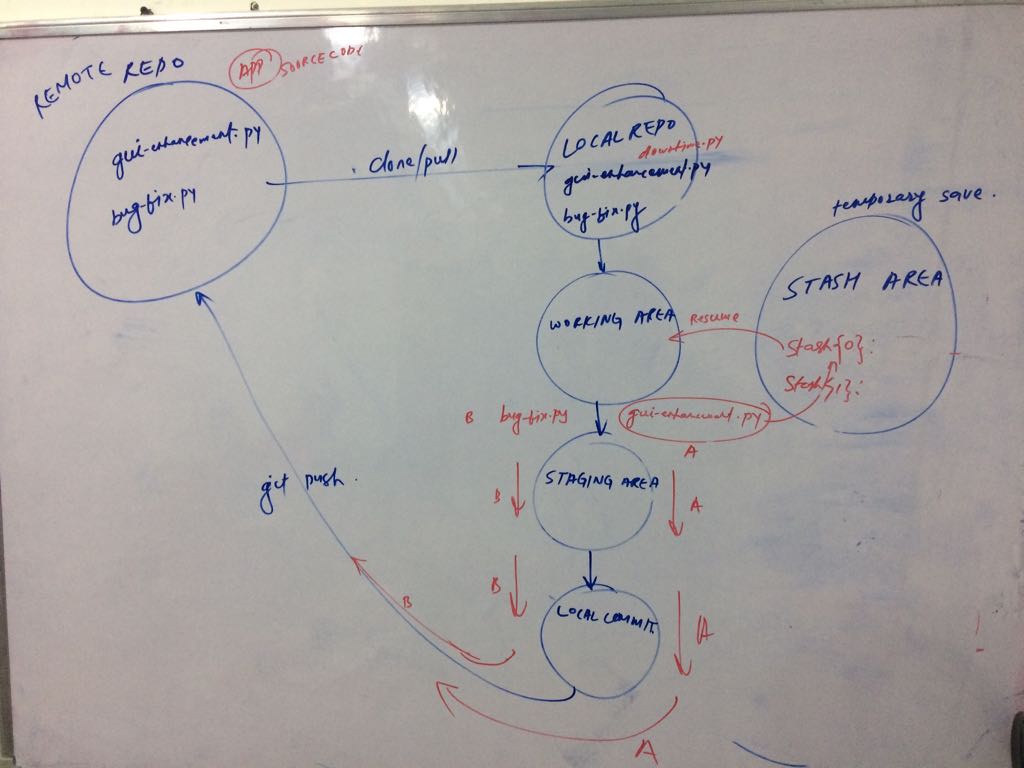 REMOTE REPO
APP SOURCECODE
gui-enhancement.py
bug-fix.py
clone/pull
LOCAL REPO
downtime.py
gui-enhancement.py
bug-fix.py
temporary save.
STASH AREA
Stash{0}:
Stash{1}:
Resume
WORKING AREA
B bug-fix.py
gui-enhancement.py
A
STAGING AREA
B
A
git push.
B
LOCAL COMMIT
A
B
A